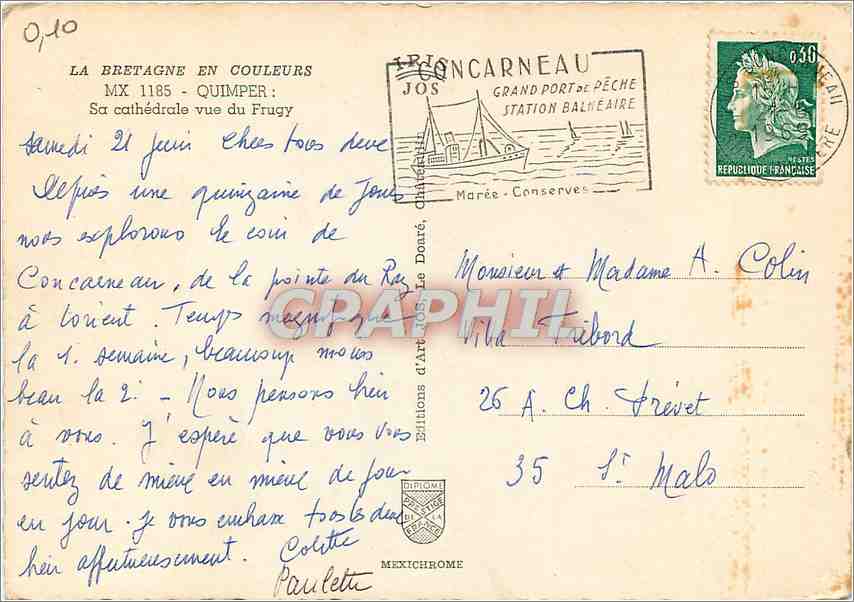 0,10
LA BRETAGNE EN COULEURS
MX 1185 - QUIMPER :
Sa cathédrale vue du Frugy
IRIS
JOS
CONCARNEAU
GRAND PORT DE PÊCHE
STATION BALNÉAIRE
Marée - Conserves
0,30
POSTES
REPUBLIQUE FRANÇAISE
samedi 21 juin Chers tous deux
Depuis une quinzaine de jours
nous explorons le coin de
Concarneau, de la pointe du Raz
à Lorient. Temps magnifique
la 1. semaine, beaucoup moins
beau la 2. - Nous pensons bien
à vous. J'espère que vous vous
sentez de mieux en mieux de jour
en jour. Je vous embrasse tous les deux
bien affectueusement. Colette
Paulette
Editions d'Art JOS, Le Doaré, Châteaulin
Monsieur et Madame A. Colin
Villa Tribord
26 A. Ch. Trévet
35 St Malo
DIPLOME
PRESTIGE
DE LA
FRANCE
MEXICHROME
CPAPHIL